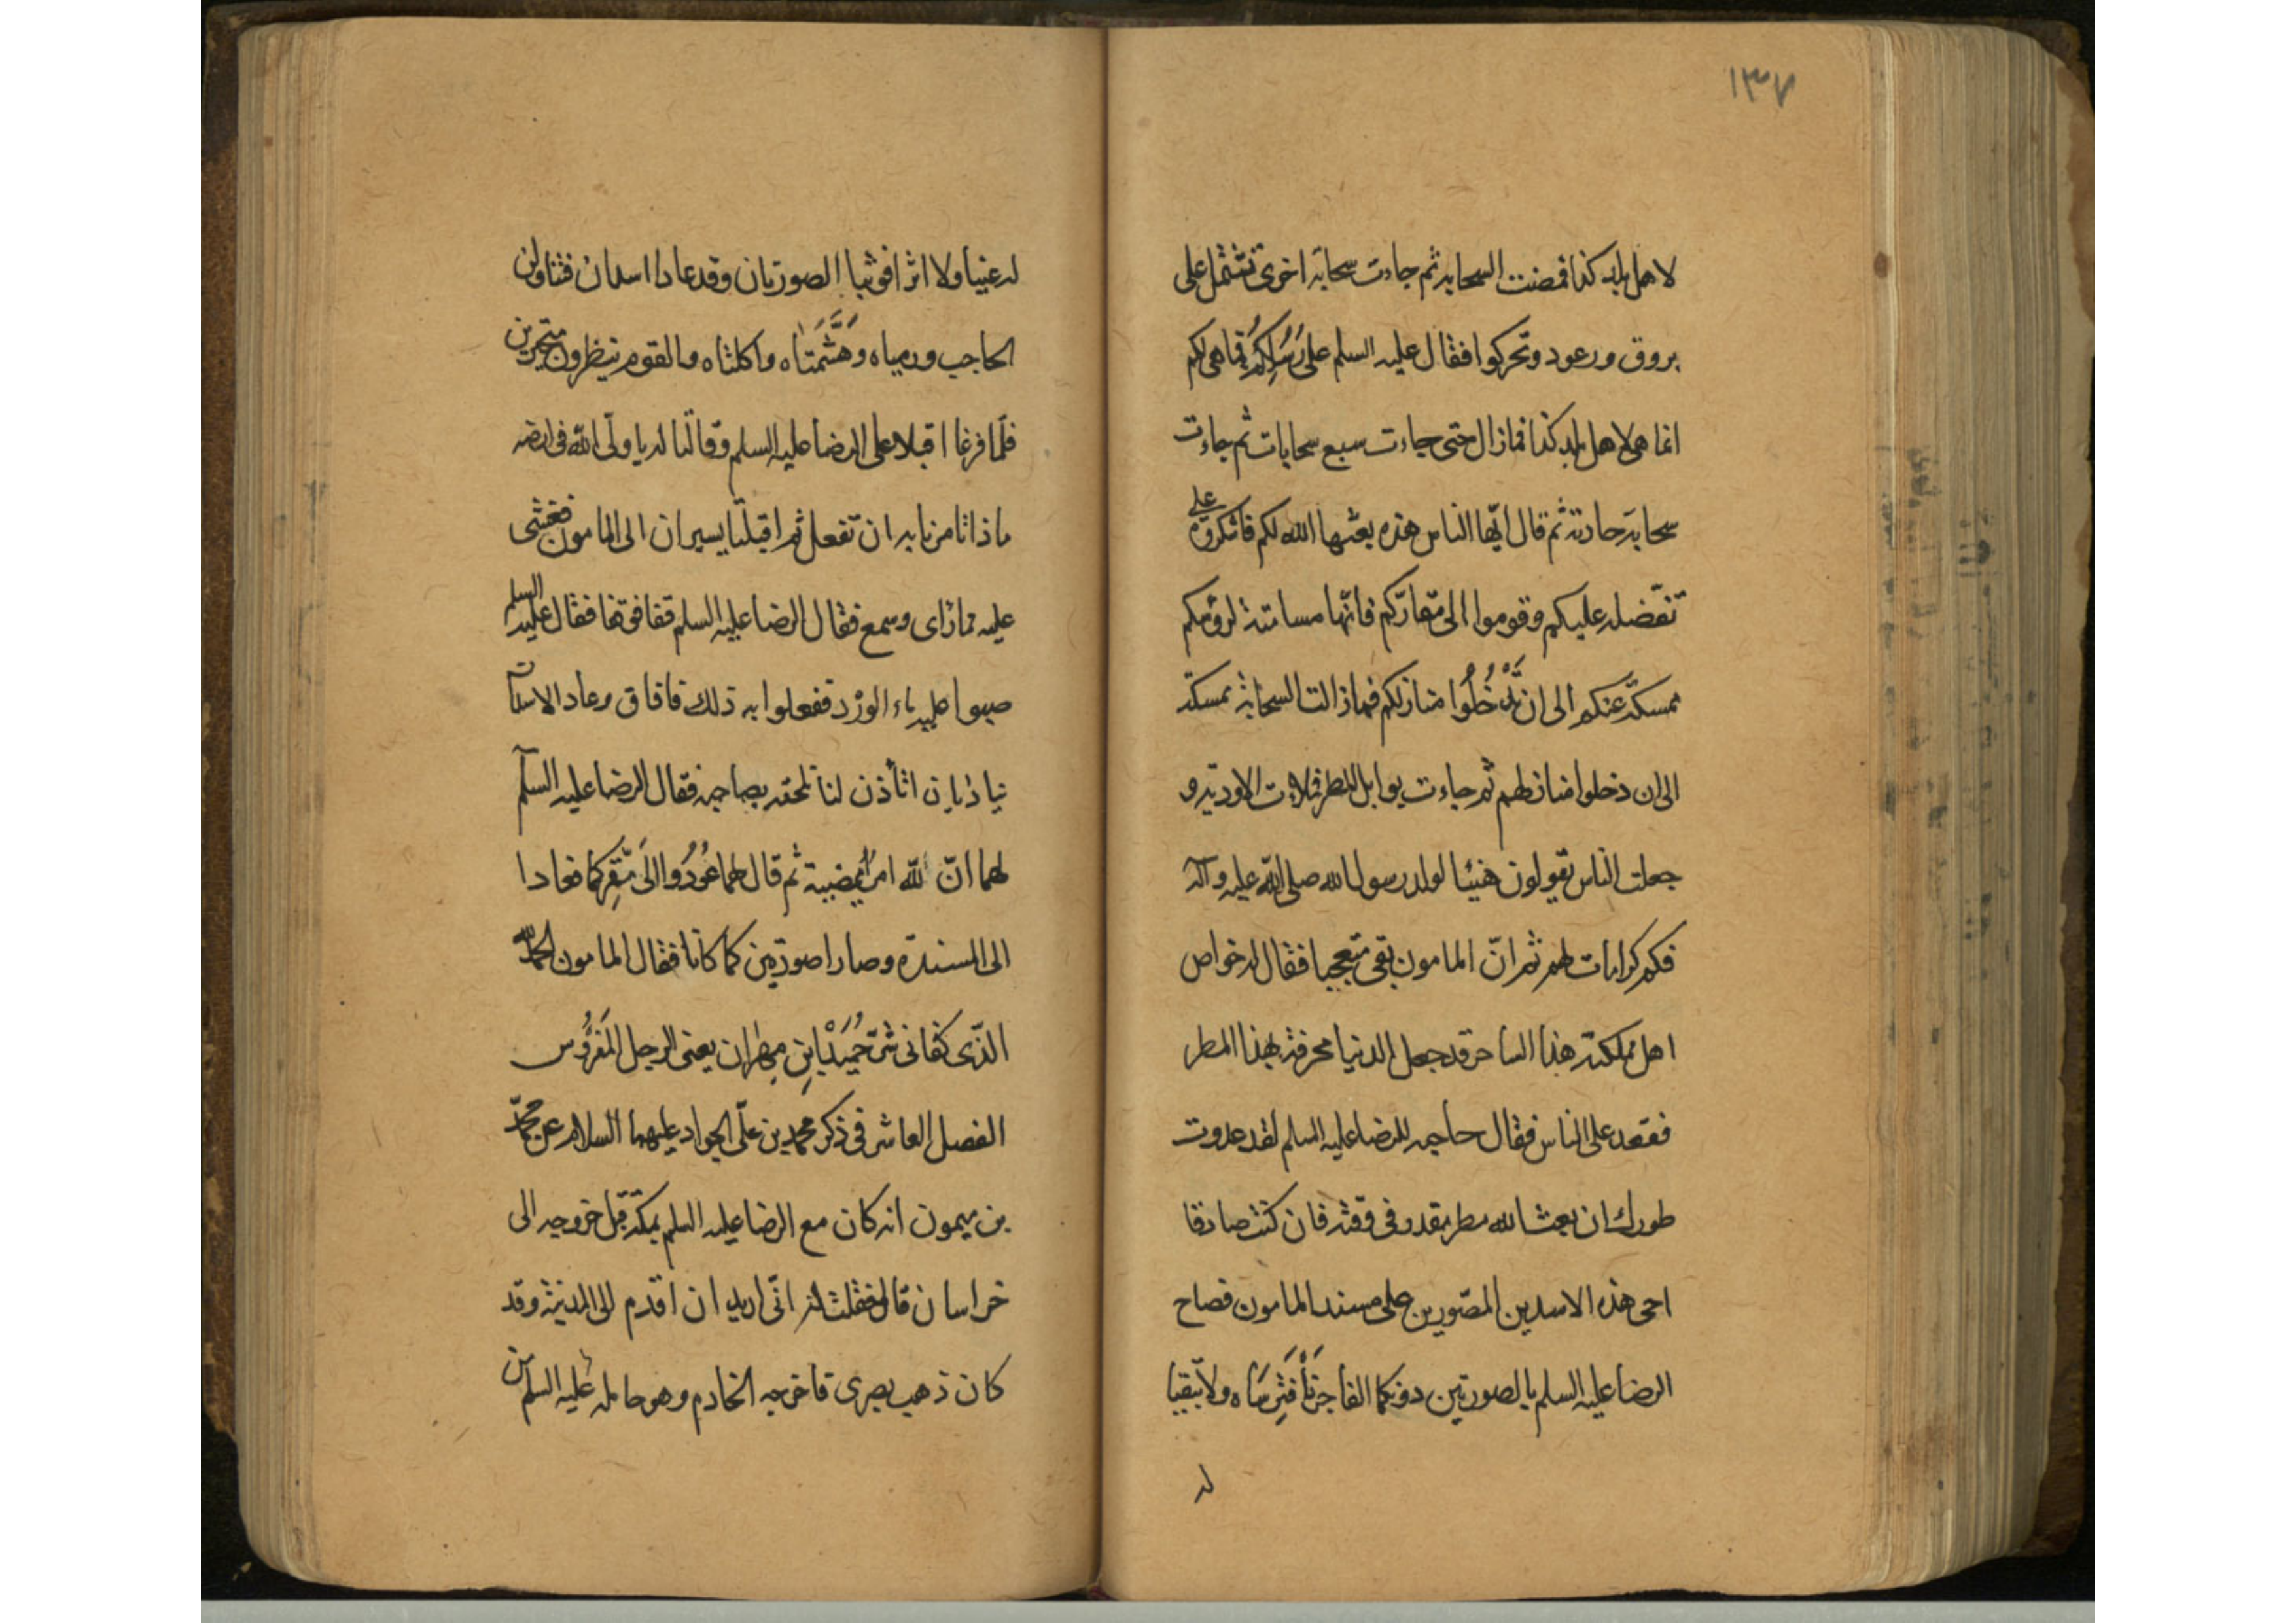 ١٣٧
لاهل بلد كذا فمضت السحابه ثم جاءت سحابة اخرى تشتمل على
بروق ورعود وتحركوا فقال عليه السلم على رَسُلِكُم فما هى لكم
انما هى لاهل بلد كذا فمازال حتى جاءت سبع سحابات ثم جاءت
سحابة حادية ثم قال ايّها الناس هذه بعثها الله لكم فاشكروه على
تفضله عليكم وقوموا الى مقارّكم فانّها مسامتة لرؤسكم
ممسكة عنكم الى ان تَدْخُلُوا منازلكم فمازالت السحابة ممسكة
الى ان دخلوا منازلهم ثم جاءت بوابل المطر فملات الاودية و
جعلت الناس يقولون هنيئا لولد رسول الله صلى الله عليه وآله
فكم كرامات لهم ثم انّ المامون بقى متعجبا فقال له خواص
اهل مملكته هذا الساحر قد جعل الدنيا مخرقة بهذا المطر
فقعد على الناس فقال حاجبه للرضا عليه السلم لقد عدوت
طورك ان بعث الله مطر بقدر فى وقته فان كنت صادقا
احى هذه الاسدين المصّورين على مسند المامون فصاح
الرضا عليه السلم بالصورتين دونكما الفاجر فَافْتَرِسَاه ولا تبقيا
له
له عينا ولا اثرا فوثبا الصورتان وقد عادا اسدان فتناولن
الحاجب ورمياه وَهَشَّمَتَاه واكلتاه والقوم ينظرون متحيرين
فلّما فرغا اقبلا على الرضا عليه السلم وقالتا له يا ولّى الله فى ارضه
ماذا تامرنا به ان نفعل ثم اقبلتا يسيران الى المامون فغشى
عليه مما رأى وسمع فقال الرضا عليه السلم قفا فوقفا فقال عليه السلم
صبوا عليه ماء الورد ففعلوا به ذلك فافاق وعاد الاسدان
ينادّيان اتأذن لنا نلحقه بصاحبه فقال الرضا عليه السلم
لهما انّ لله امرًا يمضيه ثم قال لهما عُودُوا الَى مَقِّرِكما فعادا
الى المسندة وصارا صورتين كما كانا فقال المامون الحمد لله
الذّى كفانى شرّ حُمَيْدَ ابنِ مِهران يعنى الرجل المَفرُوس
الفصل العاشر فى ذكر محمد بن علّى الجواد عليهما السلام عن محمّد
بن ميمون انه كان مع الرضا عليه السلم بمكة قبل خروجه الى
خراسان قال فقلت له انّى اريد ان اقدم الى المدينة وقد
كان ذهب بصرى فاخرجه الخادم وهو حامله عليه السلم من